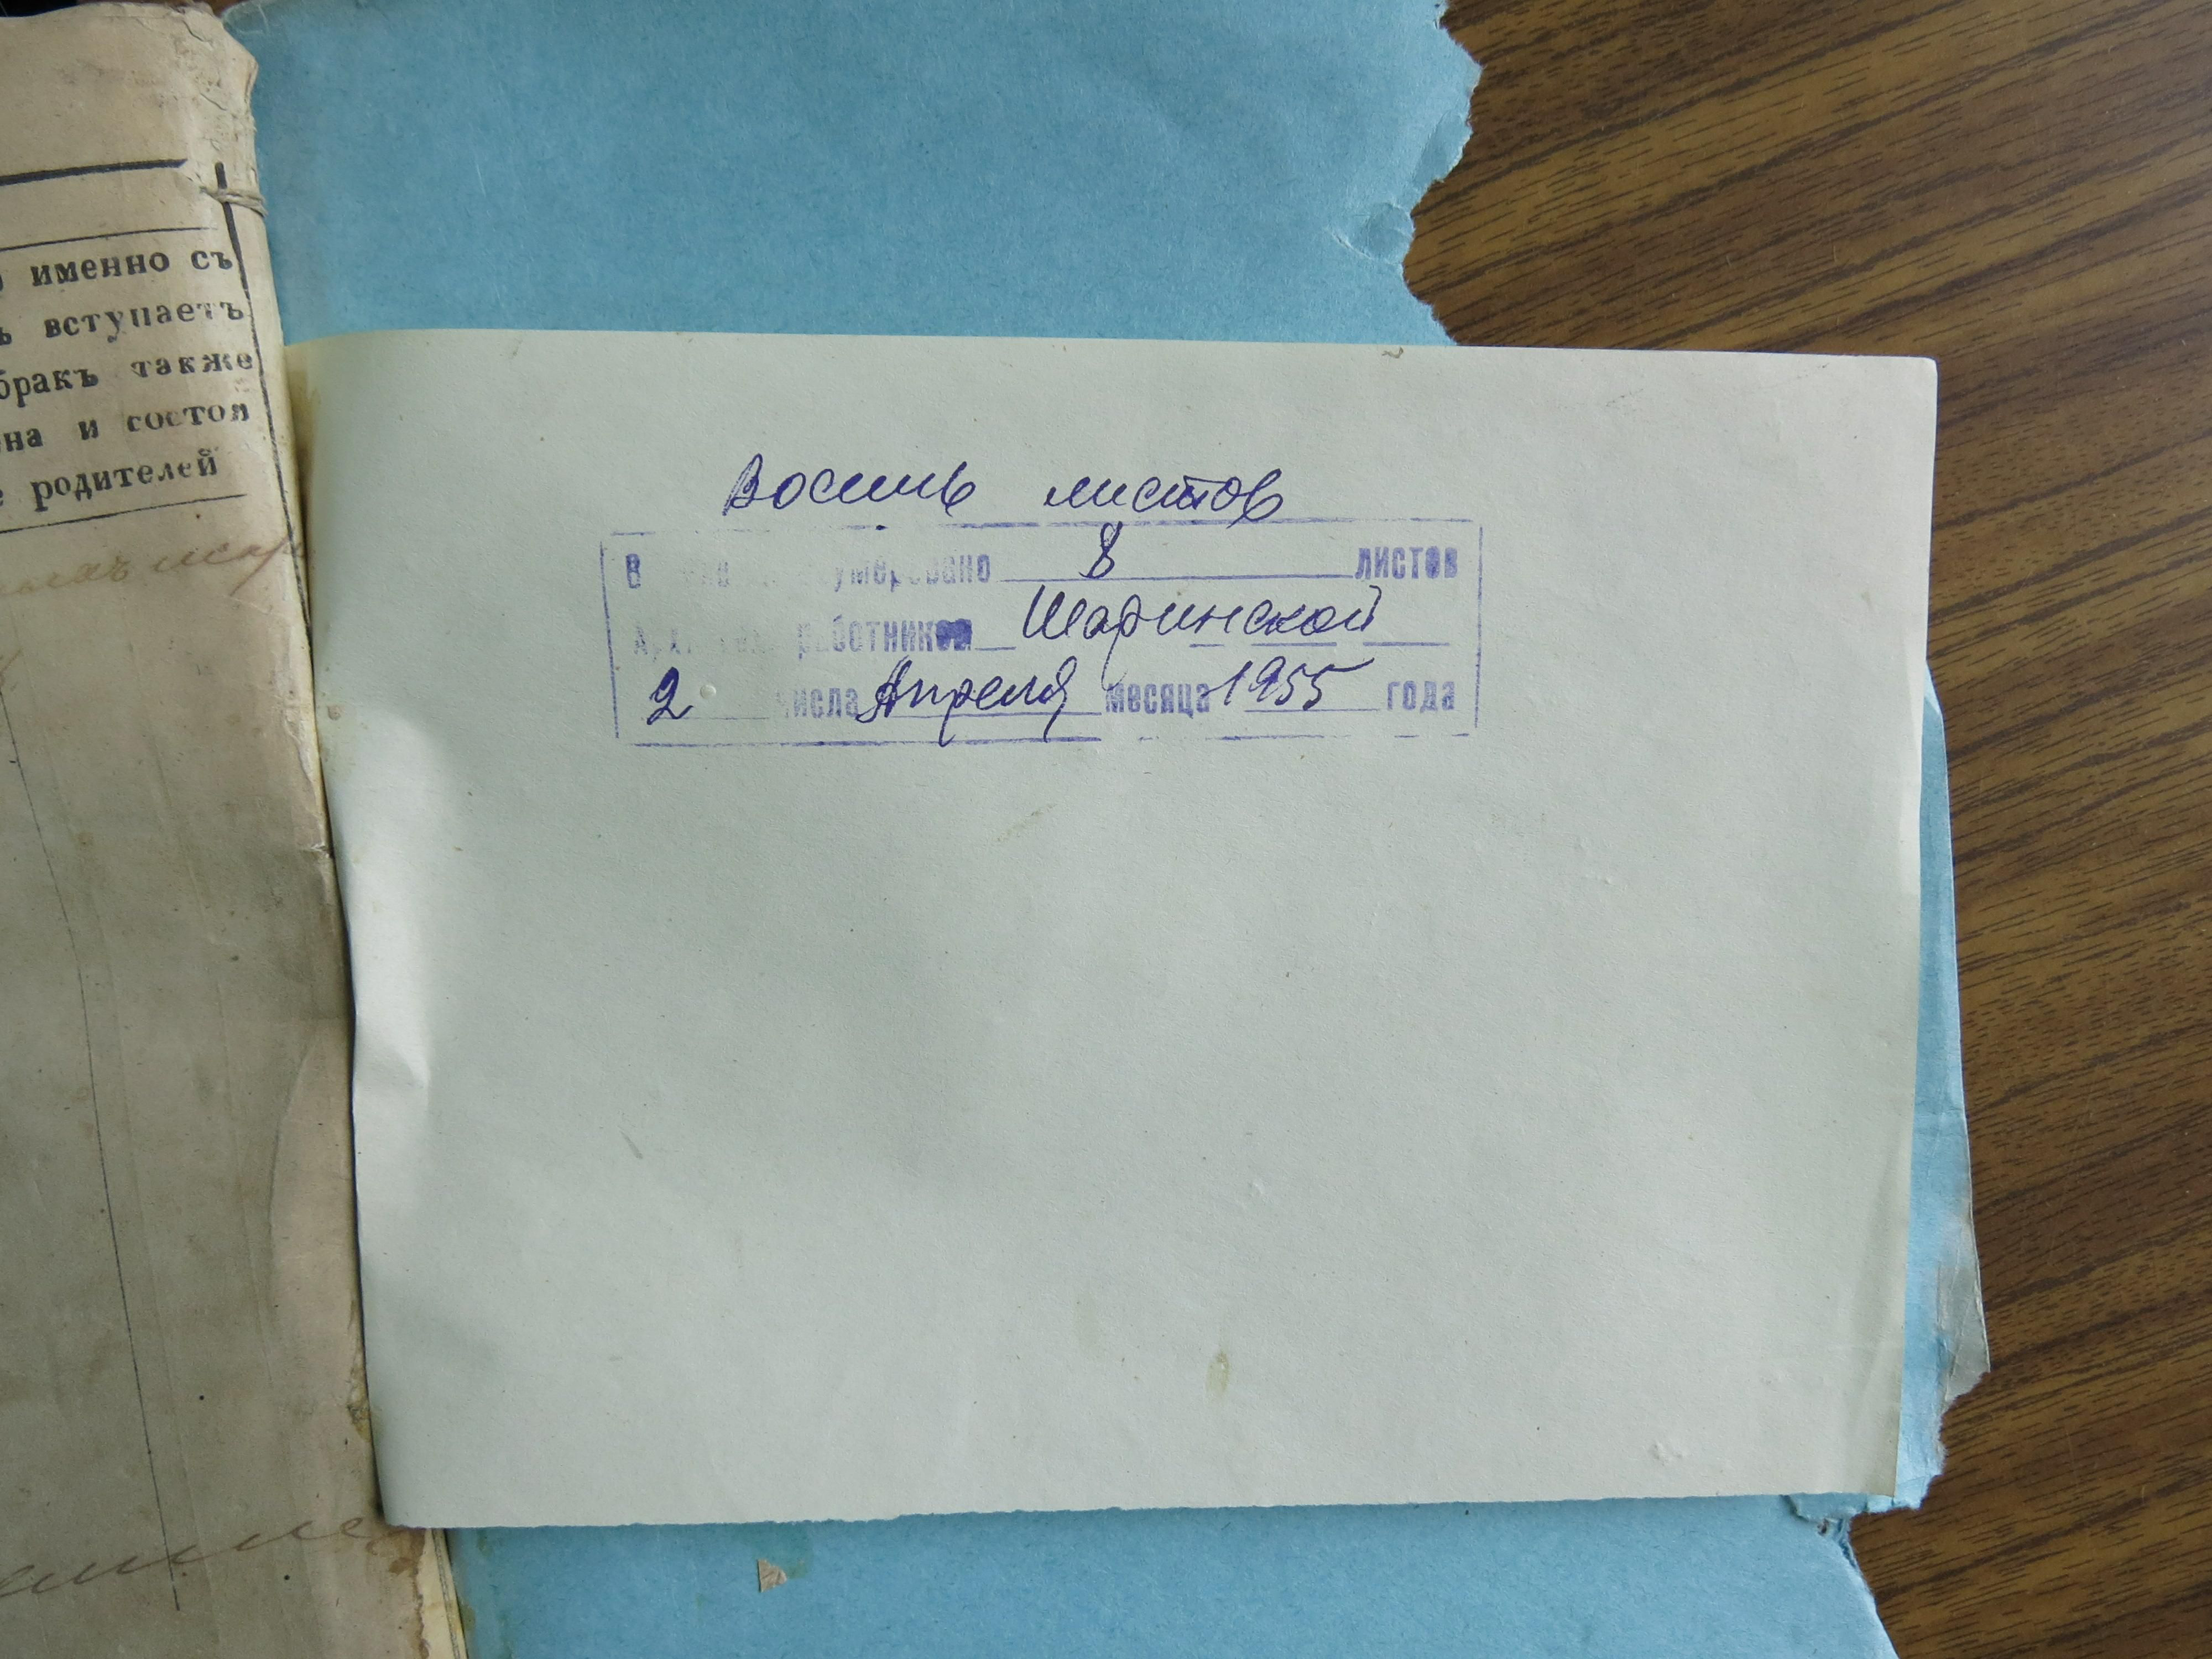 именно съ
вступаетъ
бракъ также
и состоя
родителей
Восемь листов
В пронумеровано 8 листов
Архивным работником Шаринской
2 числа Апреля месяца 1955 года